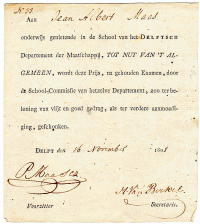 Aan Jean Albert Maas
onderwijs genietende in de School van het DELFTSCH
Departement der Maatschappij, TOT NUT VAN 'T AL-
GEMEEN, wordt deze Prijs, na gehouden Examen, door
de School-Commissie van hetzelve Departement, zoo ter be-
looning van vlijt en goed gedrag, als ter verdere aanmoedi-
ging, geschonken.
DELFT den 16 November
Voorzitter Secretaris.